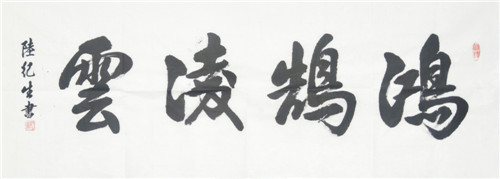 鴻鵠凌雲
陸紀生書